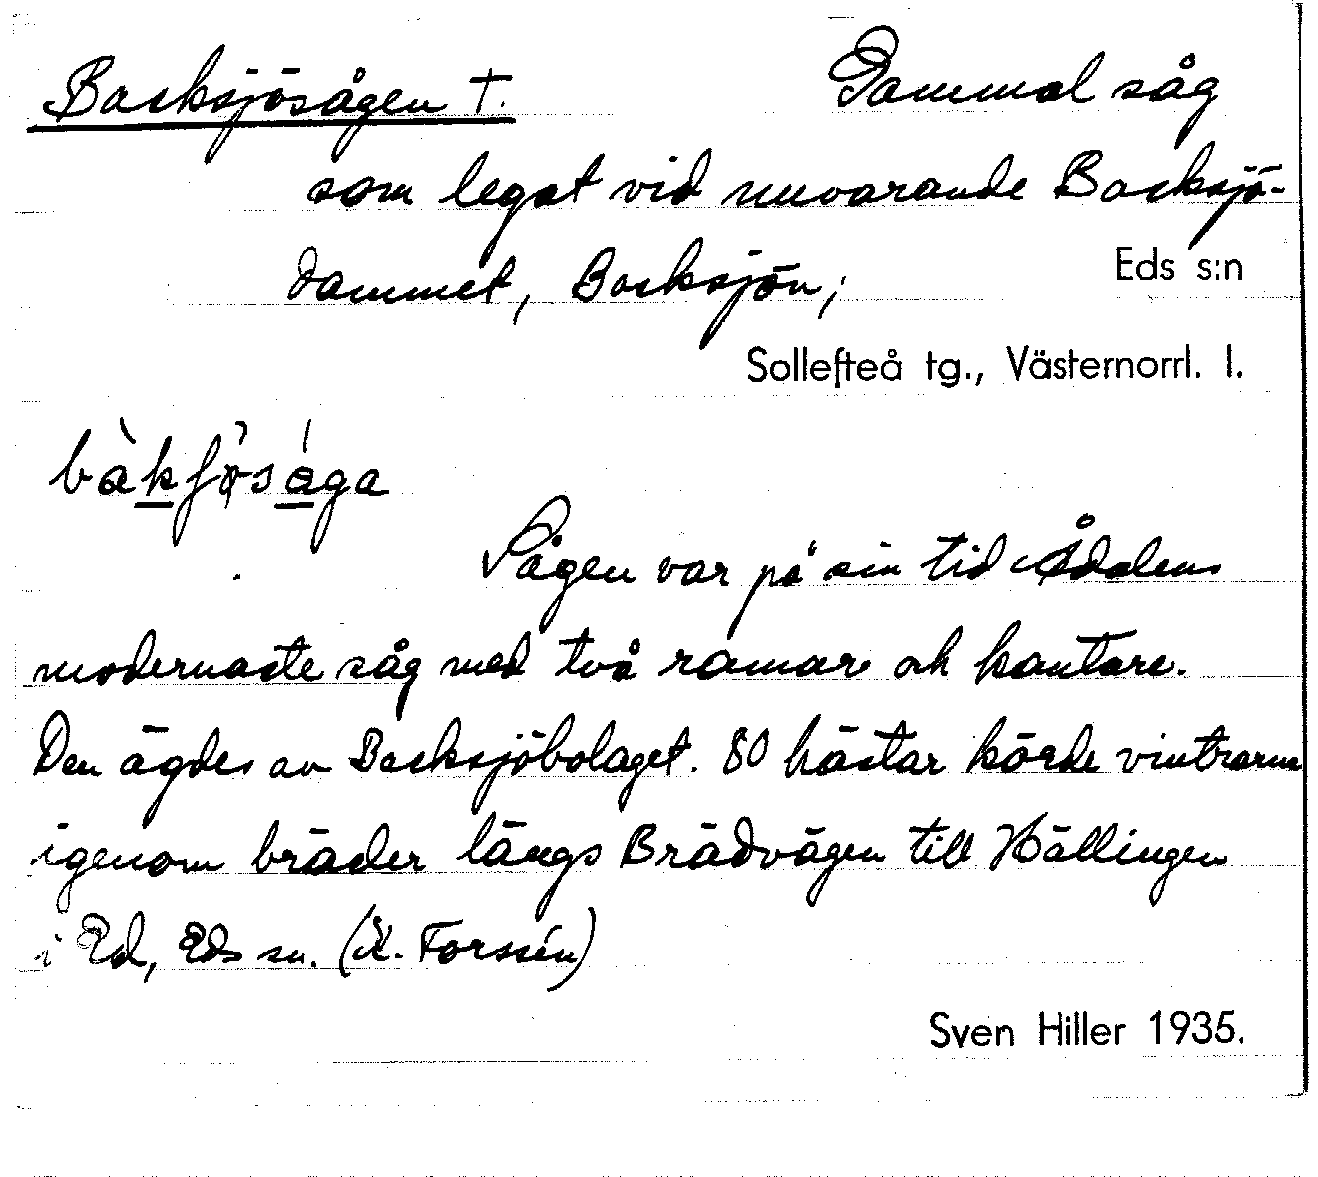 Backsjösågen †. Gammal såg
som legat vid nuvarande Backsjö-
dammet, Backsjön;
Eds s:n
Sollefteå tg., Västernorrl. l.
Sågen var på sin tid Ådalens
modernaste såg med två ramar och kantare.
Den ägdes av Backsjöbolaget. 80 hästar körde vintrarna
igenom bräder längs Brädvägen till Hällingen
i Ed, Eds sn. (K. Forssén)
Sven Hiller 1935.